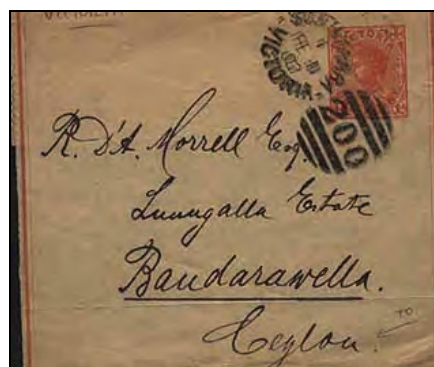 VICTORIA
VICTORIA
200
R. D'A. Morrell Esq.
Lunugalla Estate
Bandarawella.
Ceylon.
TO